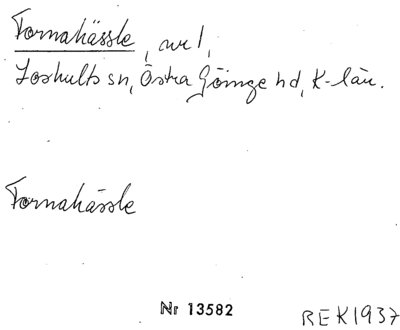 Tornahässle, nr 1,
Loshults sn, Östra Göinge hd, K-län.
Tornahässle
Nr 13582
REK1937